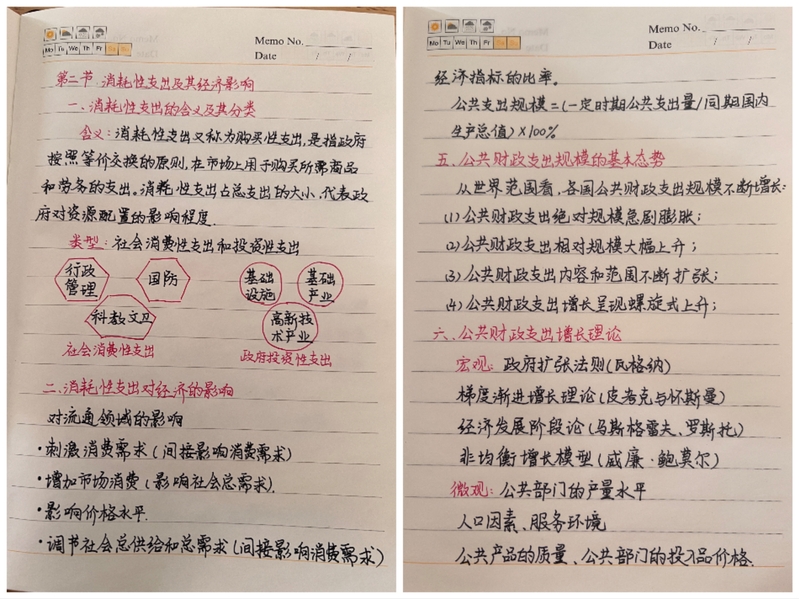 Mo Tu We Th Fr Sa Su
Memo No.
Date / /
第二节 消耗性支出及其经济影响
一、消耗性支出的含义及其分类
含义：消耗性支出又称为购买性支出，是指政府
按照等价交换的原则，在市场上用于购买所需商品
和劳务的支出。消耗性支出占总支出的大小，代表政
府对资源配置的影响程度.
类型：社会消费性支出和投资性支出
行政
管理
国防
科教文卫
社会消费性支出
基础
设施
基础
产业
高新技
术产业
政府投资性支出
二、消耗性支出对经济的影响
对流通领域的影响
·刺激消费需求（间接影响消费需求）
·增加市场消费（影响社会总需求）.
·影响价格水平.
·调节社会总供给和总需求（间接影响消费需求）
Mo Tu We Th Fr Sa Su
Memo No.
Date / /
经济指标的比率。
公共支出规模=(一定时期公共支出量/同期国内
生产总值)×100%
五、公共财政支出规模的基本态势
从世界范围看，各国公共财政支出规模不断增长：
(1)公共财政支出绝对规模急剧膨胀；
(2)公共财政支出相对规模大幅上升；
(3)公共财政支出内容和范围不断扩张；
(4)公共财政支出增长呈现螺旋式上升；
六、公共财政支出增长理论
宏观：政府扩张法则(瓦格纳)
梯度渐进增长理论(皮考克与怀斯曼)
经济发展阶段论(马斯格雷夫、罗斯托)
非均衡增长模型(威廉·鲍莫尔)
微观：公共部门的产量水平
人口因素、服务环境
公共产品的质量、公共部门的投入品价格.